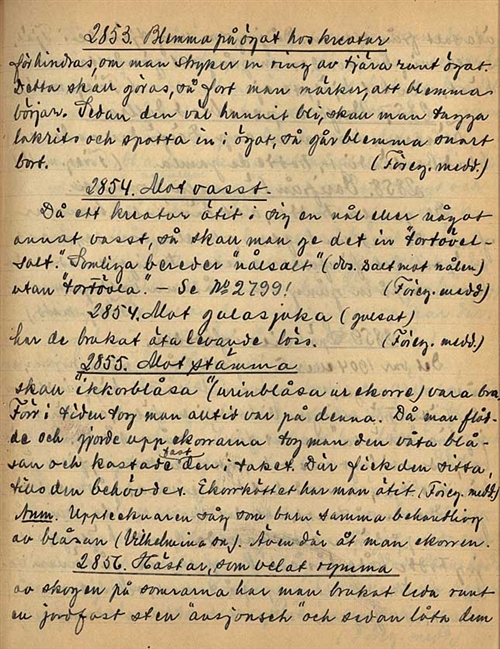 2853. Blemma på ögat hos kreatur
förhindras, om man stryker in ring av tjära runt ögat.
Detta skall göras, så fort man märker, att blemma
börjar. Sedan den väl hunnit bli, skall man tugga
lakrits och spotta in i ögat, så går blemma snart
bort. (Föreg. medd.)
2854. Mot vasst.
Då ett kreatur ätit i sig en nål eller något
annat vasst, så skall man ge det in "tortövel-
salt". Somliga bereder "nålsalt" (dvs. salt mot nålen)
utan "tortövla". - Se No 2799! (Föreg. medd)
2854. Mot gulasjuka (gulsot)
har de brukat äta levande löss. (Föreg. medd.)
2855. Mot stämma
skall "ikkorblåsa" (urinblåsa ur ekorre) vara bra
Förr i tiden tog man alltid var på denna. Då man flåd-
de och gjorde upp ekorrarna tog man den våta blå-
san och kastade fast den i taket. Där fick den sitta,
tills den behövdes. Ekorrköttet har man ätit. (Föreg. medd)
Anm. Upptecknaren såg som barn samma behandling
av blåsan (Vilhelmina sn). Även där åt man ekorren.
2856. Hästar, som velat rymma
av skogen på somrarna har man brukat leda runt
en jordfast sten "ansjonsch" och sedan låta dem